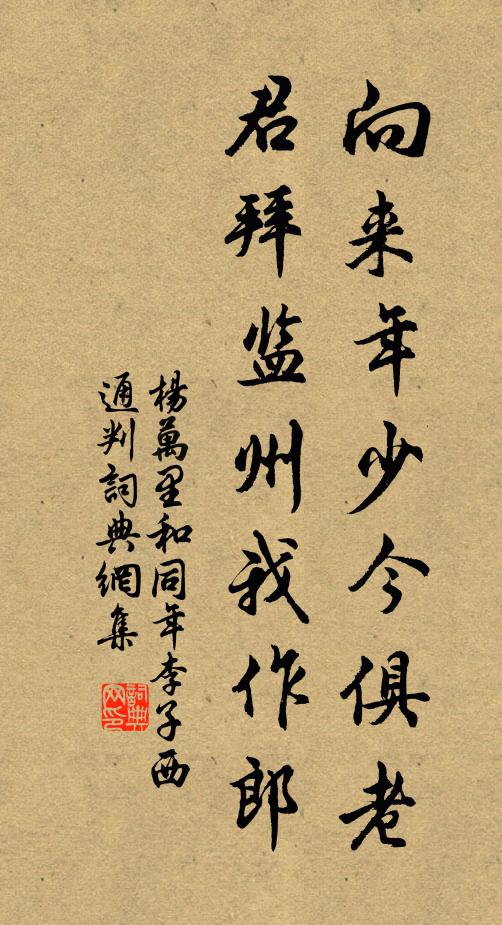 向来年少今俱老
君拜监州我作郎
楊萬里和同年李子西
通判詞典網集
詞典网印